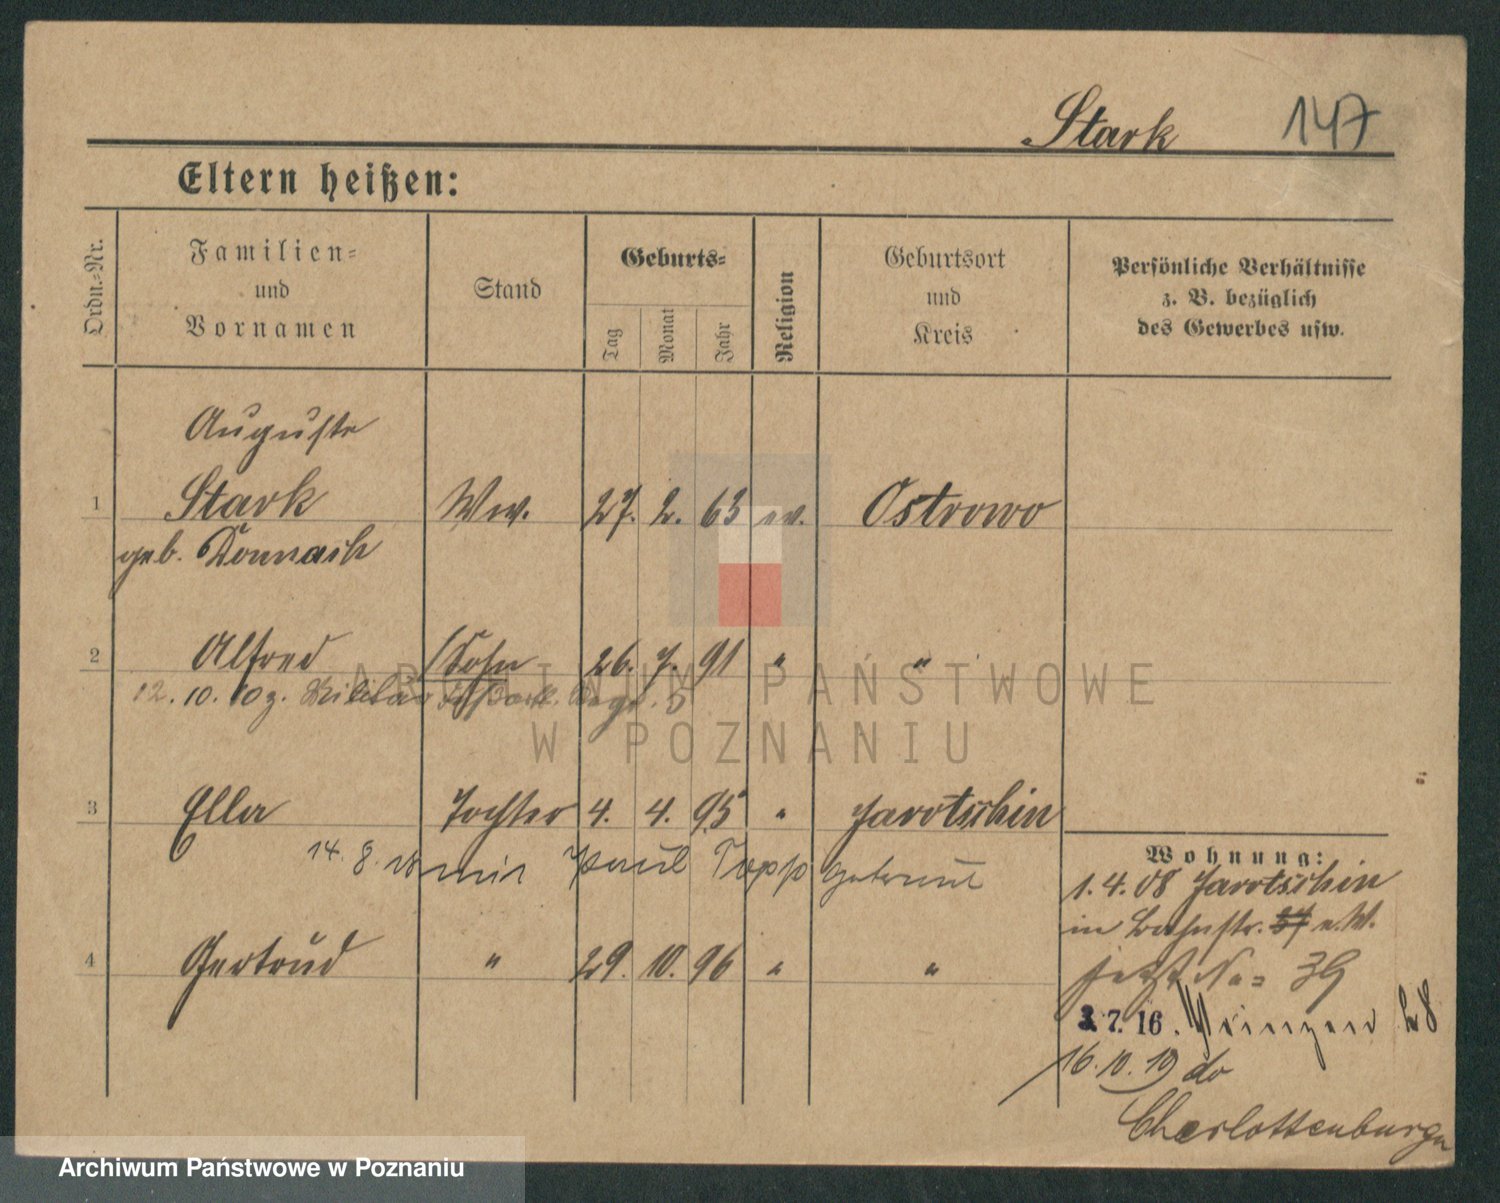 Stark 147
Eltern heißen:
Ordn.-Nr.
Familien-
und
Vornamen
Stand
Geburts-
Tag
Monat
Jahr
Religion
Geburtsort
und
Kreis
Persönliche Verhältnisse
z. B. bezüglich
des Gewerbes usw.
Auguste
1 Stark Ww. 27. 2. 63 ev. Ostrowo
geb.
2 Alfred Sohn 26. 7. 91 " "
12. 10. 10 z. Militär
3 Ella Tochter 4. 4. 95 " Jarotschin
14. 8. 18 mit Paul Topp getraut
4 Gertrud " 29. 10. 96 " "
Wohnung:
1. 4. 08 Jarotschin
in Bahnstr. 37 e.W.
jetzt No = 39
7. 16. 28
16. 10. 19 do
Charlottenburg
ARCHIWUM PAŃSTWOWE
W POZNANIU
Archiwum Państwowe w Poznaniu